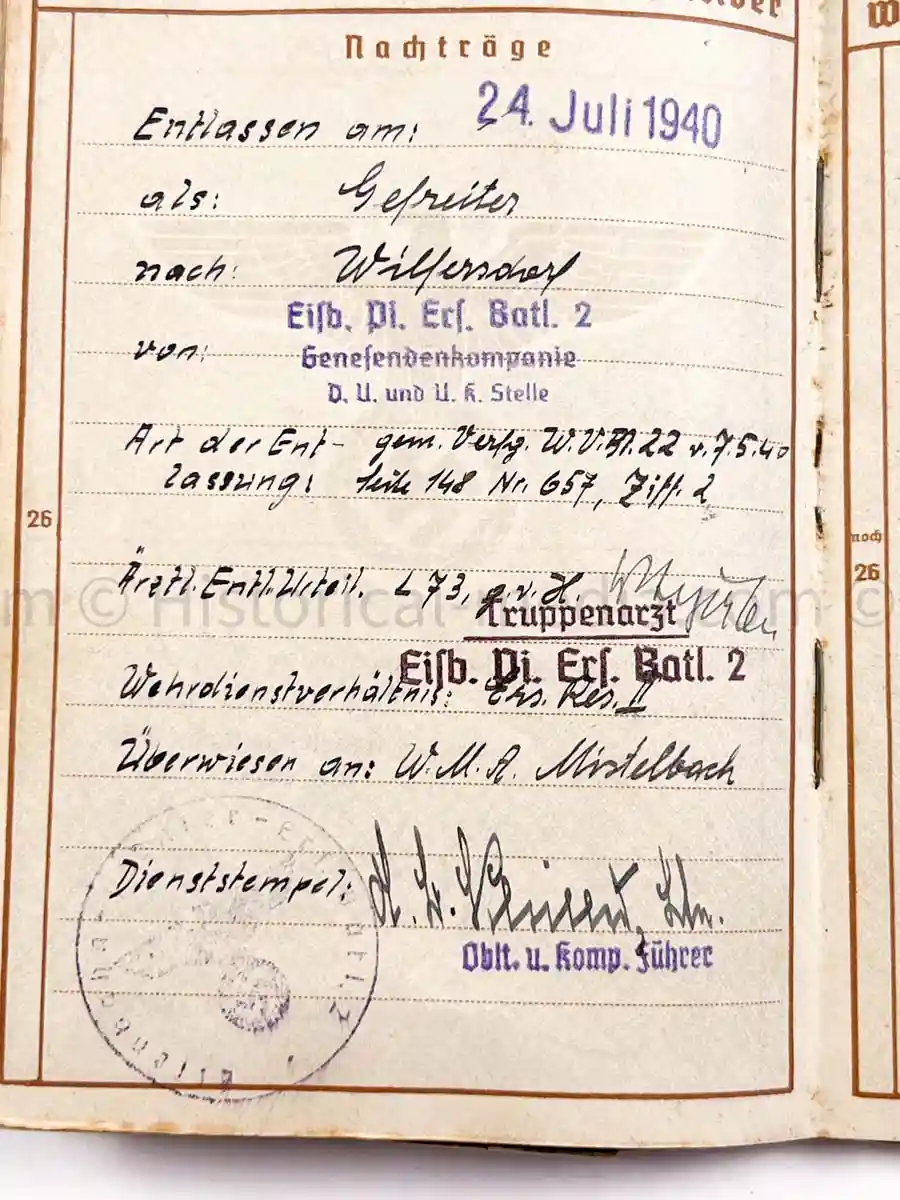 Nachträge
Entlassen am: 24. Juli 1940
als: Gefreiter
nach: Wilfersdorf
Eisb. Pi. Ers. Batl. 2
von: Genesendenkompanie
D. U. und U. K. Stelle
Art der Ent- gem. Verfg. W.V.Bl. 22 v. 7.5.40
lassung: Seite 148 Nr. 657, Ziff. 2
26
noch
26
Ärztl. Entl. Urteil. L 73, g.v.H.
Truppenarzt
Eisb. Pi. Ers. Batl. 2
Wehrdienstverhältnis: Ers. Res. II
Überwiesen an: W.M.A. Mistelbach
Dienststempel:
Oblt. u. Komp. Führer
© Historical